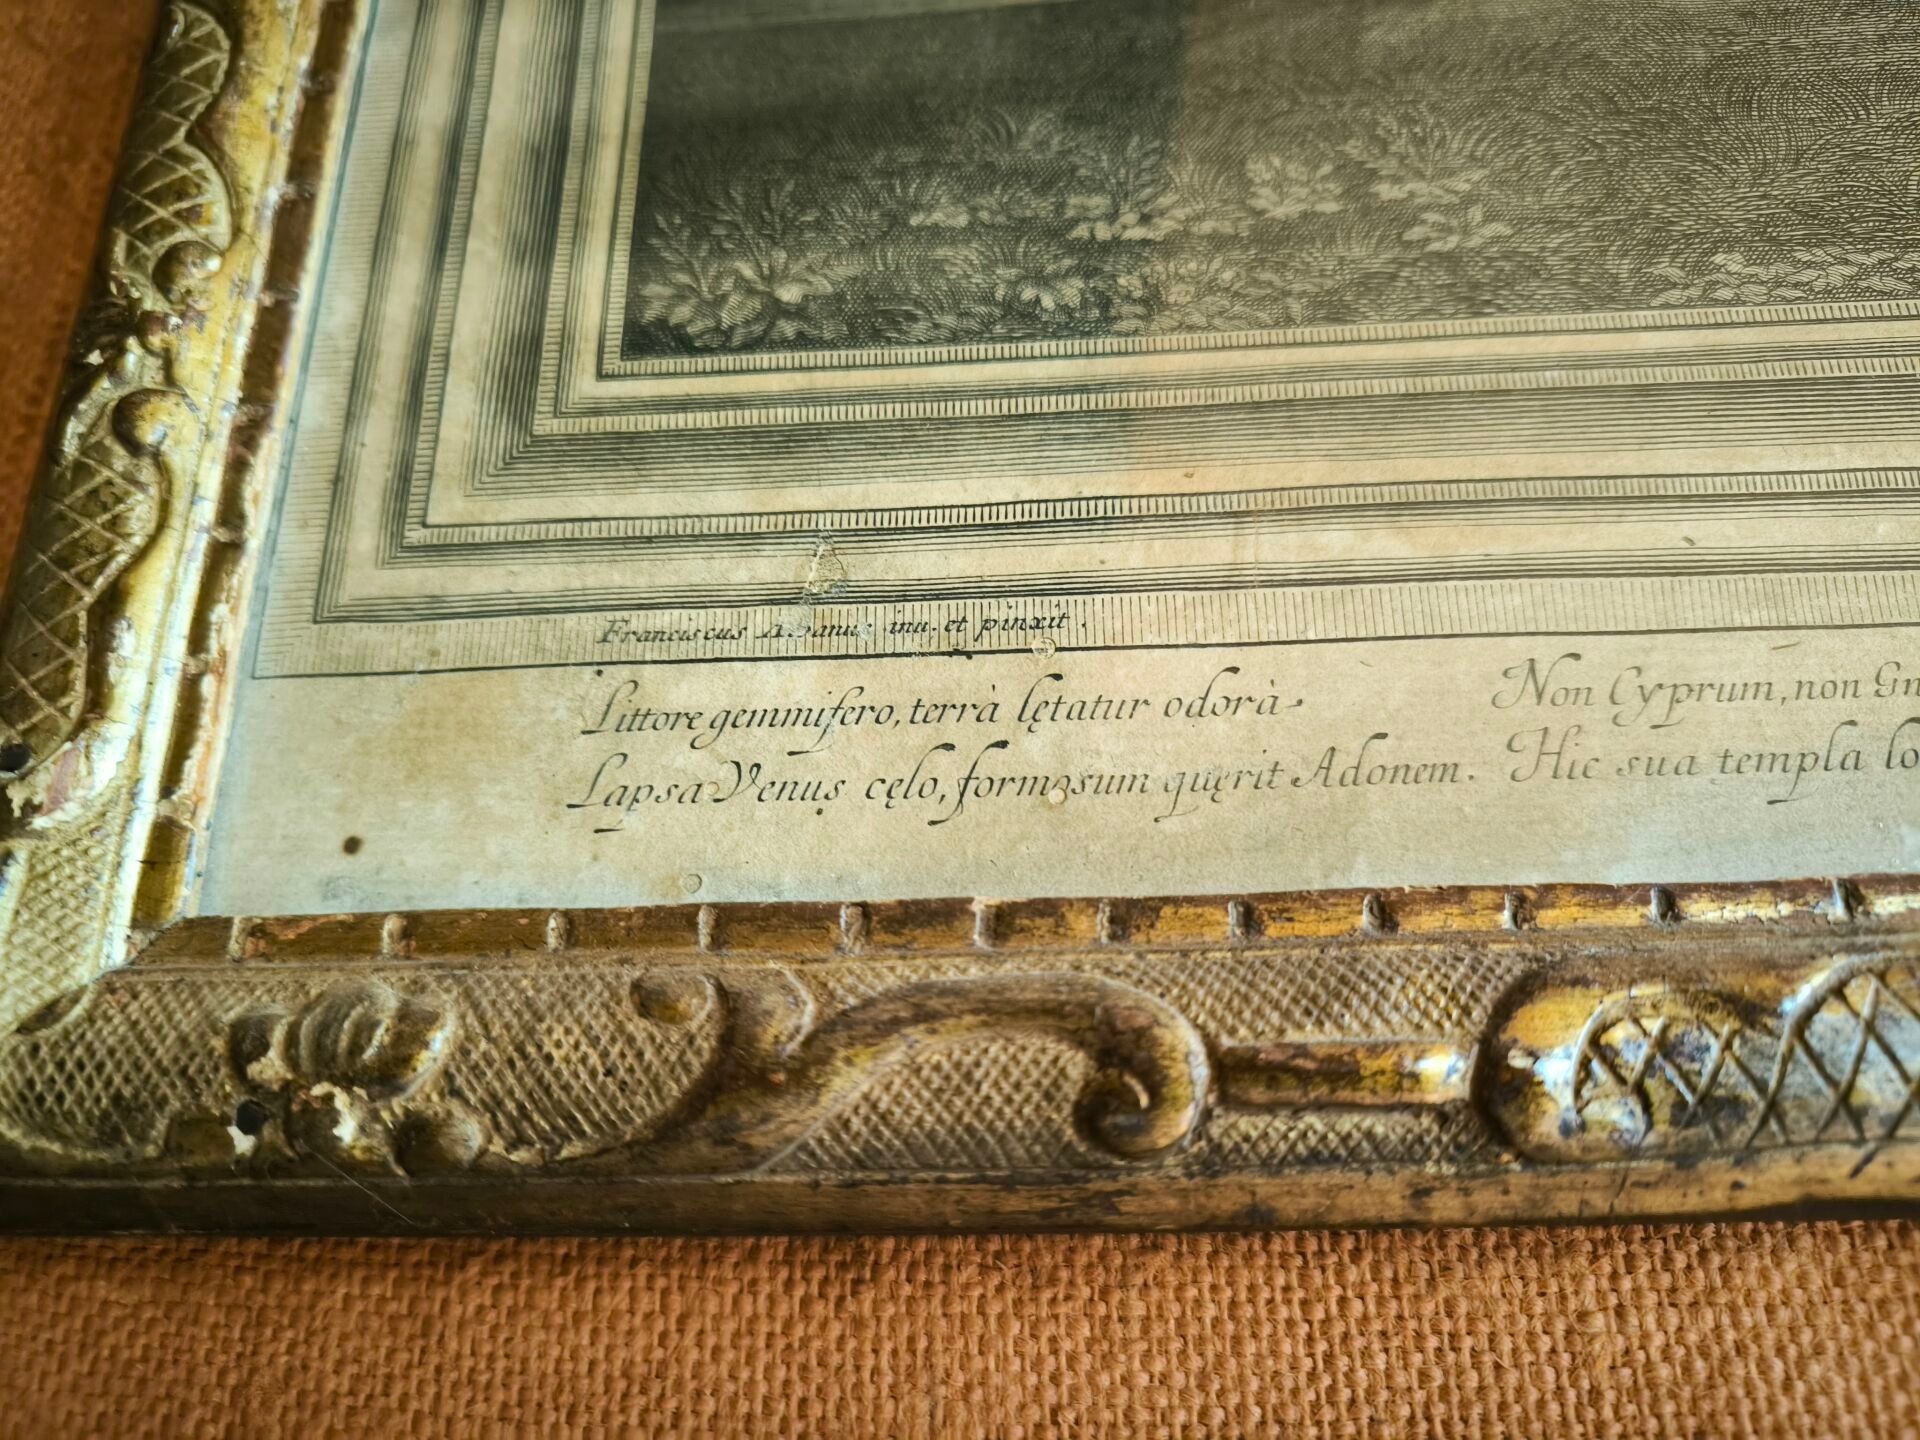 Franciscus Albanus inu. et pinxit.
Littore gemmifero, terrà lętatur odorà
Lapsa Venus cęlo, formosum quęrit Adonem.
Non Cyprum, non Gn
Hic sua templa lo